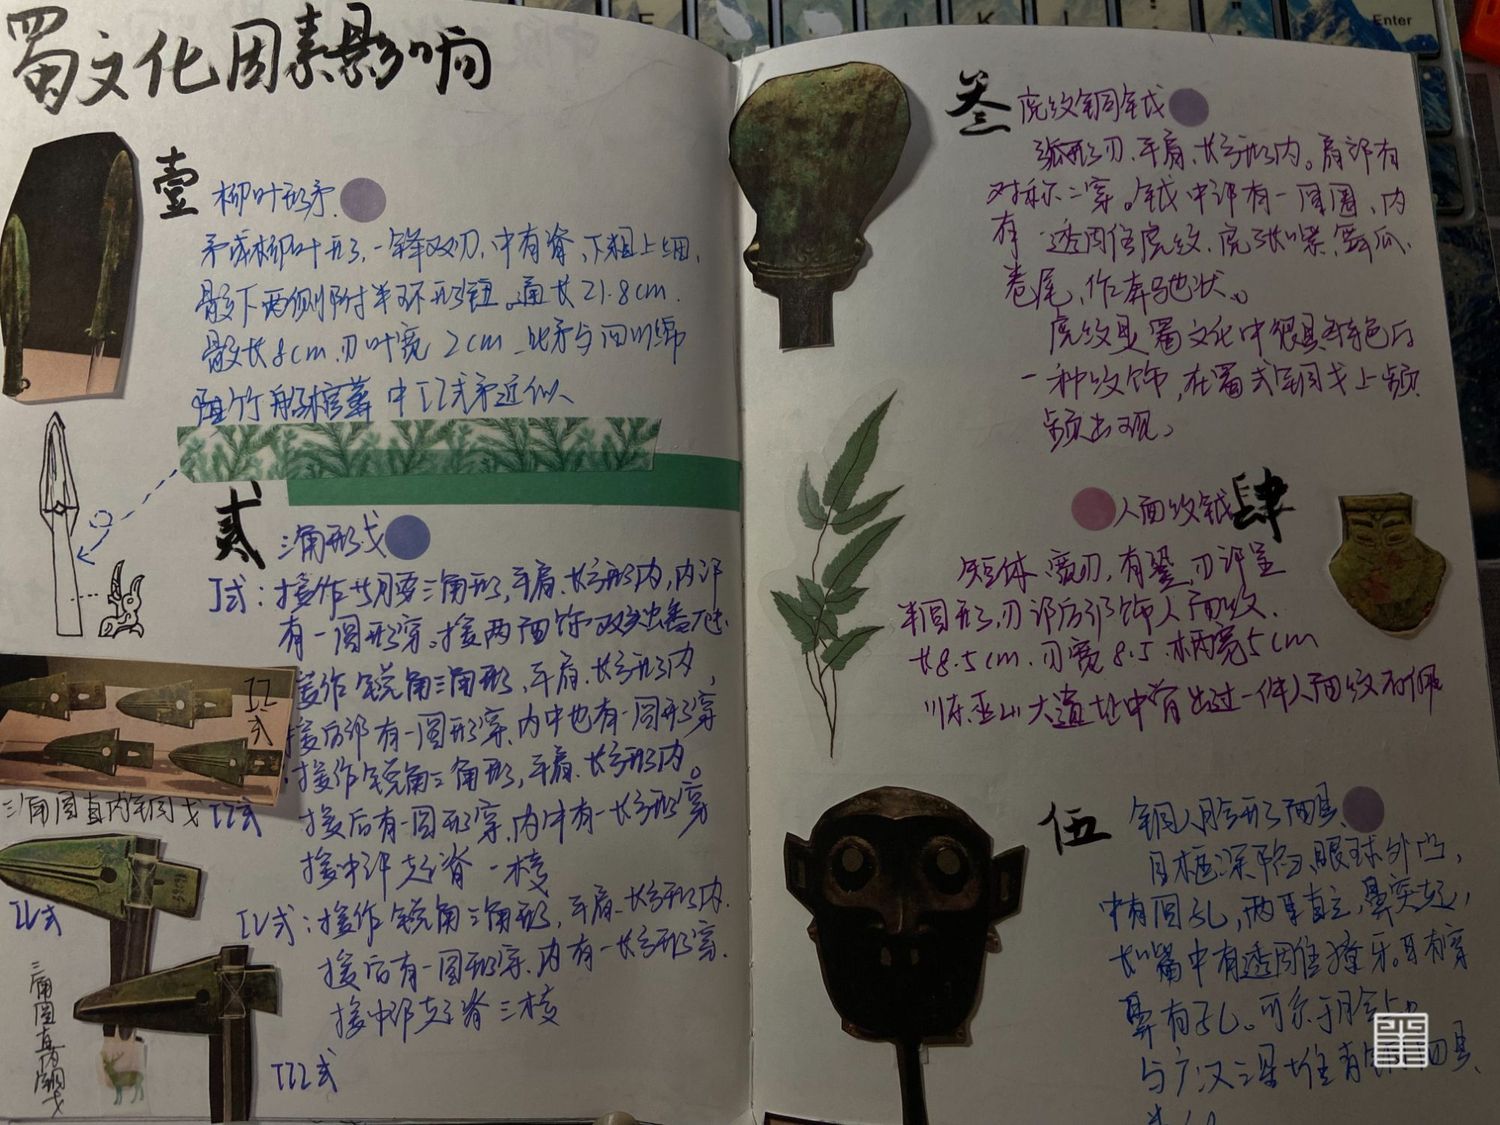 蜀文化因素影响
壹 柳叶形矛
矛成柳叶形，一锋双刃，中有脊，下粗上细，
骹下两侧附半环形钮。通长21.8cm.
骹长8cm.刃叶宽2cm.此矛与四川绵
阳竹船棺墓中II式矛近似、
贰 三角形戈
I式：援作 三角形，平肩、长方形内，内部
有一圆形穿。援两面饰
援作锐角三角形，平肩、长方形内，
援后部有一圆形穿、内中也有一圆形穿
援作锐角三角形，平肩、长方形内。
援后有一圆形穿，内中有一长方形穿
援中部起脊一棱
IV式：援作锐角三角形，平肩、长方形内.
援后有一圆形穿、内有一长方形穿.
援中部起脊三棱
III式
II式
三角圆直内铜戈 II式
IV式
三角圆直内铜戈
叁 虎纹铜钺
弧形刃、平肩、长方形内。肩部有
对称二穿。钺中部有一圆圈、内
有一透雕虎纹、虎张嘴、舞爪、
卷尾、作奔驰状。
虎纹是蜀文化中很具特色的
一种纹饰，在蜀式铜戈上频
频出现、
人面纹钺 肆
短体、宽刃，有銎，刃部呈
半圆形，刃部后部饰人面纹.
长8.5cm.刃宽8.5.柄宽5cm
巫山大遗址中曾出过一件人面纹
伍 铜人脸形面具
目框深陷、眼球外凸，
中有圆孔，两耳直立，鼻突起，
长嘴中有透雕獠牙。耳有穿
鼻有孔。可系于脸上。
与广汉三星堆 面具